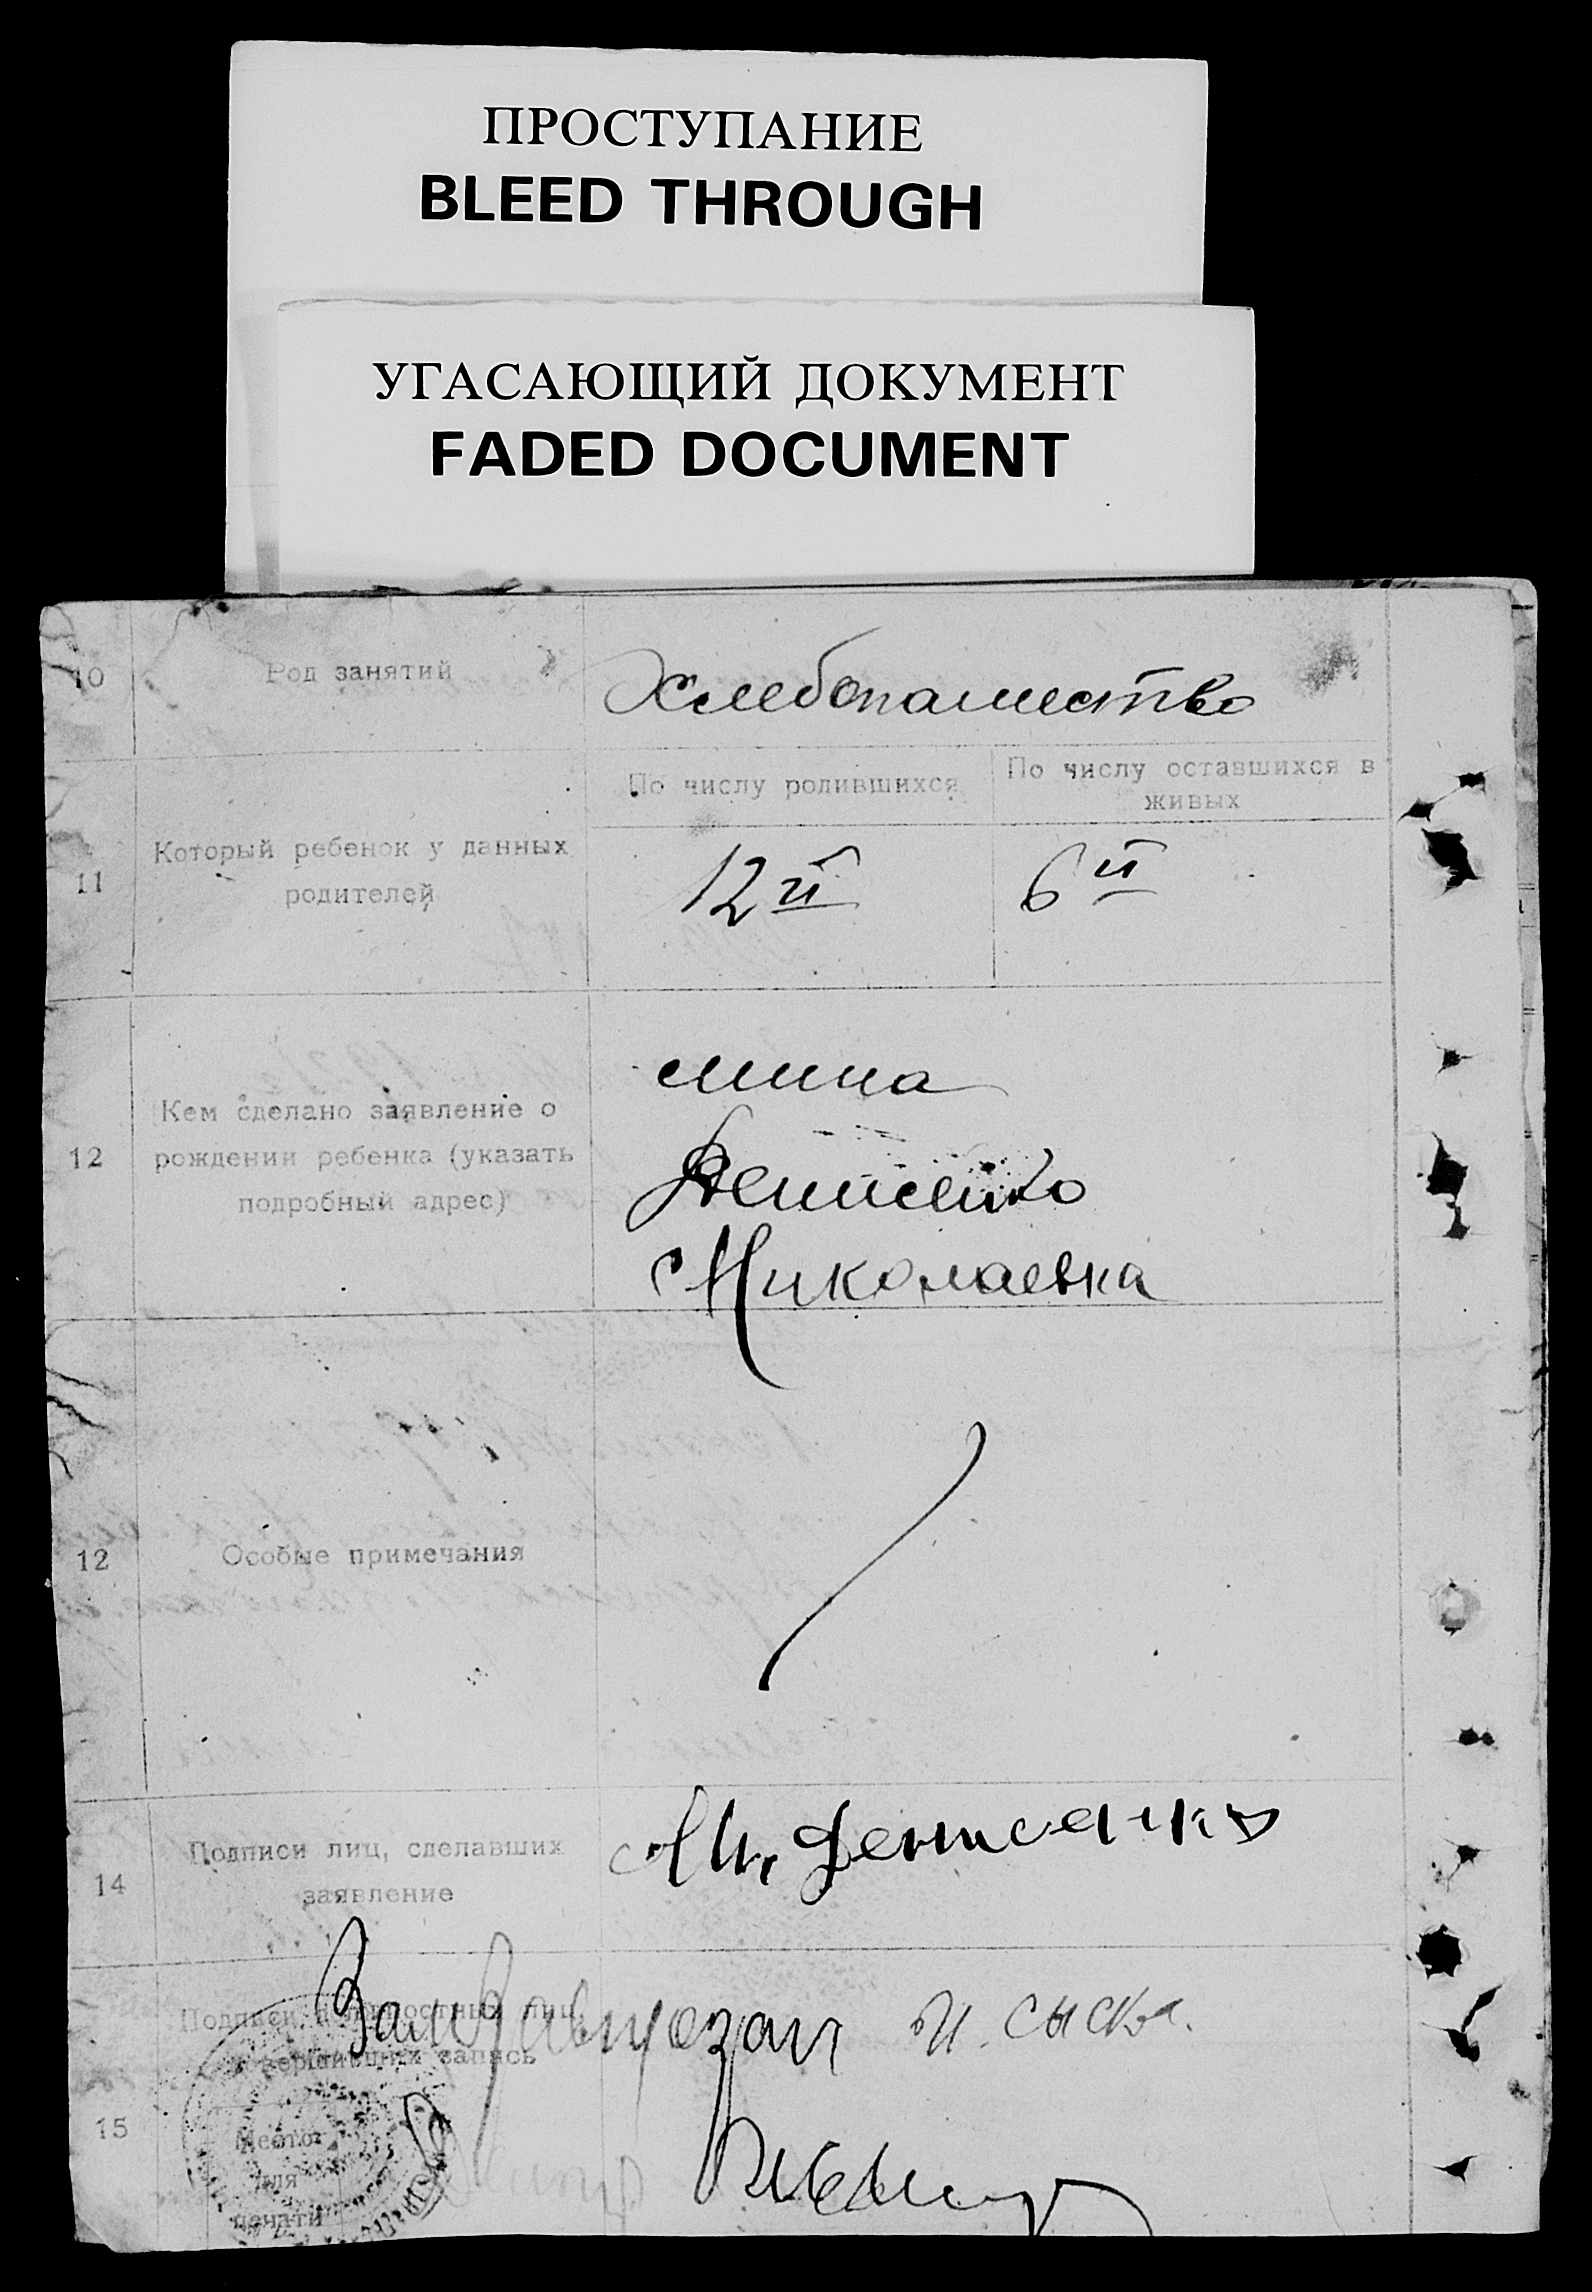 ПРОСТУПАНИЕ
BLEED THROUGH
УГАСАЮЩИЙ ДОКУМЕНТ
FADED DOCUMENT
10 Род занятий Хлебопашество
По числу родившихся По числу оставшихся в
живых
11 Который ребенок у данных
родителей 12й 6й
12 Кем сделано заявление о
рождении ребенка (указать
подробный адрес)
Денисенко
Николаевка
12 Особые примечания
14 Подписи лиц, сделавших
заявление
Денисенко
15 Подписи должностных лиц,
совершивших запись
Зам Зав
Место
для
печати